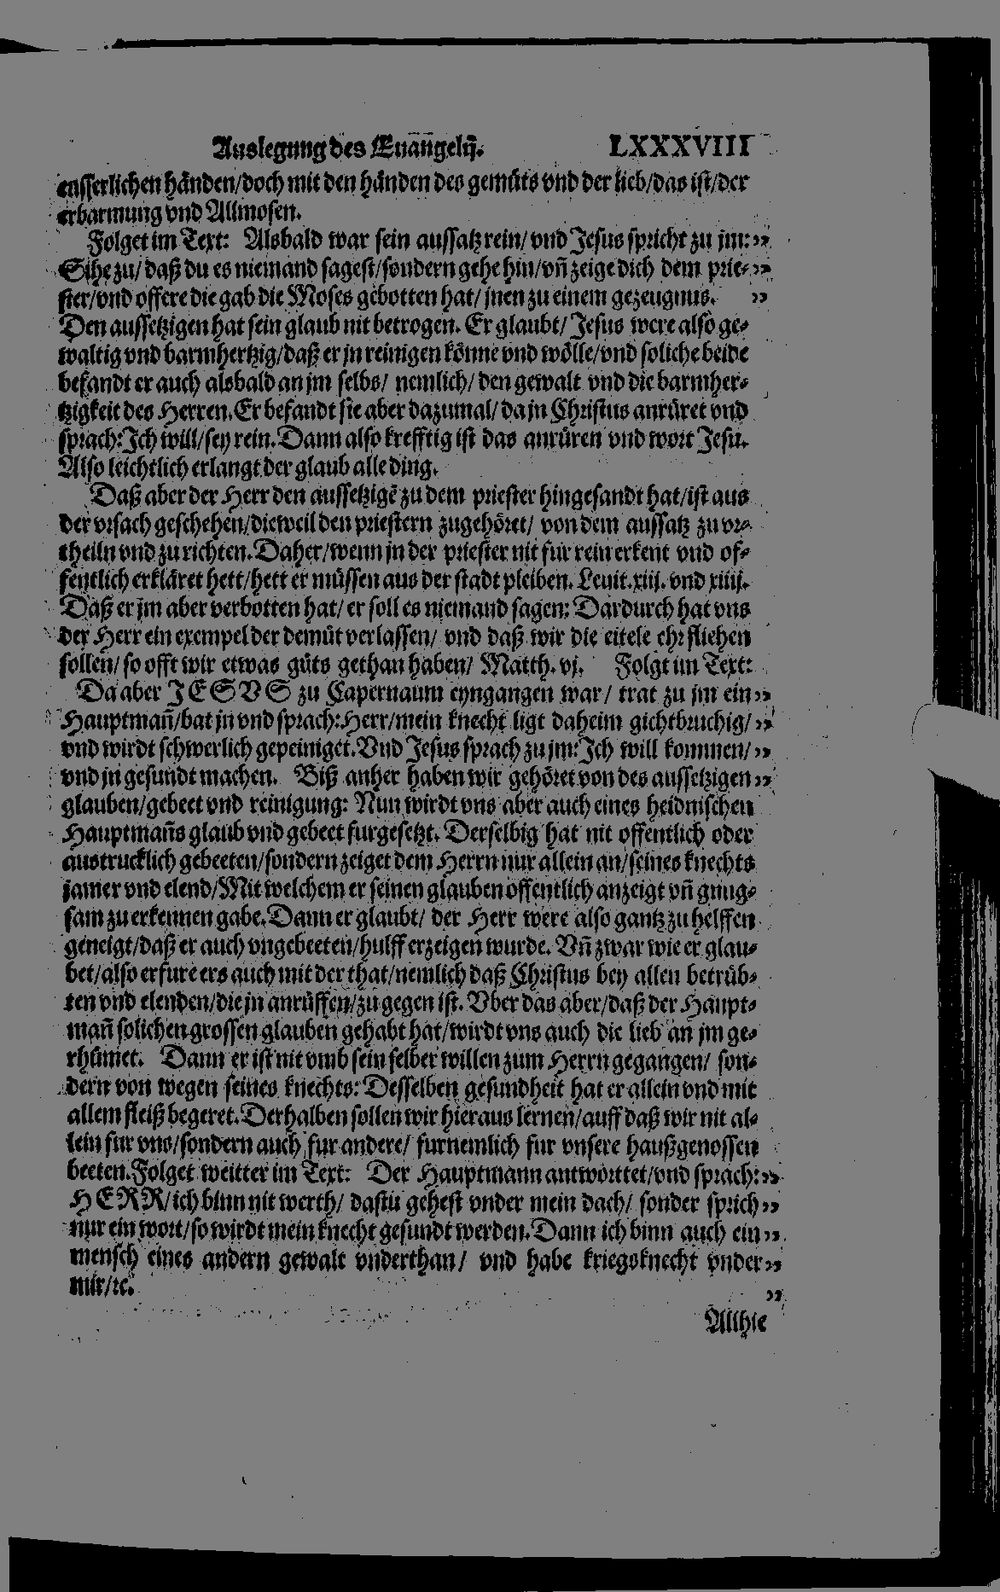 Auslegung des Euangelij. LXXXVIII
eusserlichen händen/doch mit den händen des gemüts vnd der lieb/das ist/der
erbarmung vnd Allmosen.
Folget im Text: Alsbald war sein aussatz rein/ vnd Jesus spricht zu jm: »
Sihe zu/ daß du es niemand sagest/sondern gehe hin/vñ zeige dich dem prie- »
ster/vnd offere die gab die Moses gebotten hat/ jnen zu einem gezeugnus. »
Den aussetzigen hat sein glaub nit betrogen. Er glaubt/ Jesus were also ge-
waltig vnd barmhertzig/daß er jn reinigen könne vnd wölle/vnd soliche beide
befandt er auch alsbald an jm selbs/ nemlich/ den gewalt vnd die barmher-
tzigkeit des Herren. Er befandt sie aber dazumal/ da jn Christus anrüret vnd
sprach: Ich will/sey rein. Dann also krefftig ist das anrüren vnd wort Jesu.
Also leichtlich erlangt der glaub alle ding.
Daß aber der Herr den aussetzigẽ zu dem priester hingesandt hat/ist aus
der vrsach geschehen/dieweil den priestern zugehöret/ von dem aussatz zu vr-
theiln vnd zu richten. Daher/wenn jn der priester nit für rein erkent vnd of-
fentlich erkläret hett/hett er müssen aus der stadt pleiben. Leuit. xiij. vnd xiiij.
Daß er jm aber verbotten hat/ er soll es niemand sagen: Dardurch hat vns
der Herr ein exempel der demüt verlassen/ vnd daß wir die eitele ehr fliehen
sollen/ so offt wir etwas güts gethan haben/ Matth. vj. Folgt im Text:
Da aber JESVS zu Capernaum eyngangen war/ trat zu jm ein »
Hauptmañ/bat jn vnd sprach: Herr/mein knecht ligt daheim gichtbruchig/ »
vnd wirdt schwerlich gepeiniget. Vnd Jesus sprach zu jm: Ich will kommen/ »
vnd jn gesundt machen. Biß anher haben wir gehöret von des aussetzigen »
glauben/gebeet vnd reinigung: Nun wirdt vns aber auch eines heidnischen
Hauptmañs glaub vnd gebeet furgesetzt. Derselbig hat nit offentlich oder
austrucklich gebeeten/sondern zeiget dem Herrn nur allein an/seines knechts
jamer vnd elend/Mit welchem er seinen glauben offentlich anzeigt vñ gnug-
sam zu erkennen gabe. Dann er glaubt/ der Herr were also gantz zu helffen
geneigt/daß er auch vngebeeten/hulff erzeigen wurde. Vñ zwar wie er glau-
bet/also erfure ers auch mit der that/nemlich daß Christus bey allen betrüb-
ten vnd elenden/die jn anrüffen/zu gegen ist. Vber das aber/daß der Haupt-
mañ solichen grossen glauben gehabt hat/wirdt vns auch die lieb an jm ge-
rhümet. Dann er ist nit vmb sein selber willen zum Herrn gegangen/ son-
dern von wegen seines knechts: Desselben gesundheit hat er allein vnd mit
allem fleiß begeret. Derhalben sollen wir hieraus lernen/auff daß wir nit al-
lein fur vns/sondern auch fur andere/ furnemlich fur vnsere haußgenossen
beeten. Folget weitter im Text: Der Hauptmann antwörttet/vnd sprach: »
HERR/ich binn nit werth/ dastu gehest vnder mein dach/ sonder sprich »
nur ein wort/so wirdt mein knecht gesundt werden. Dann ich binn auch ein »
mensch eines andern gewalt vnderthan/ vnd habe kriegsknecht vnder »
mir/ꝛc. »
Allhie